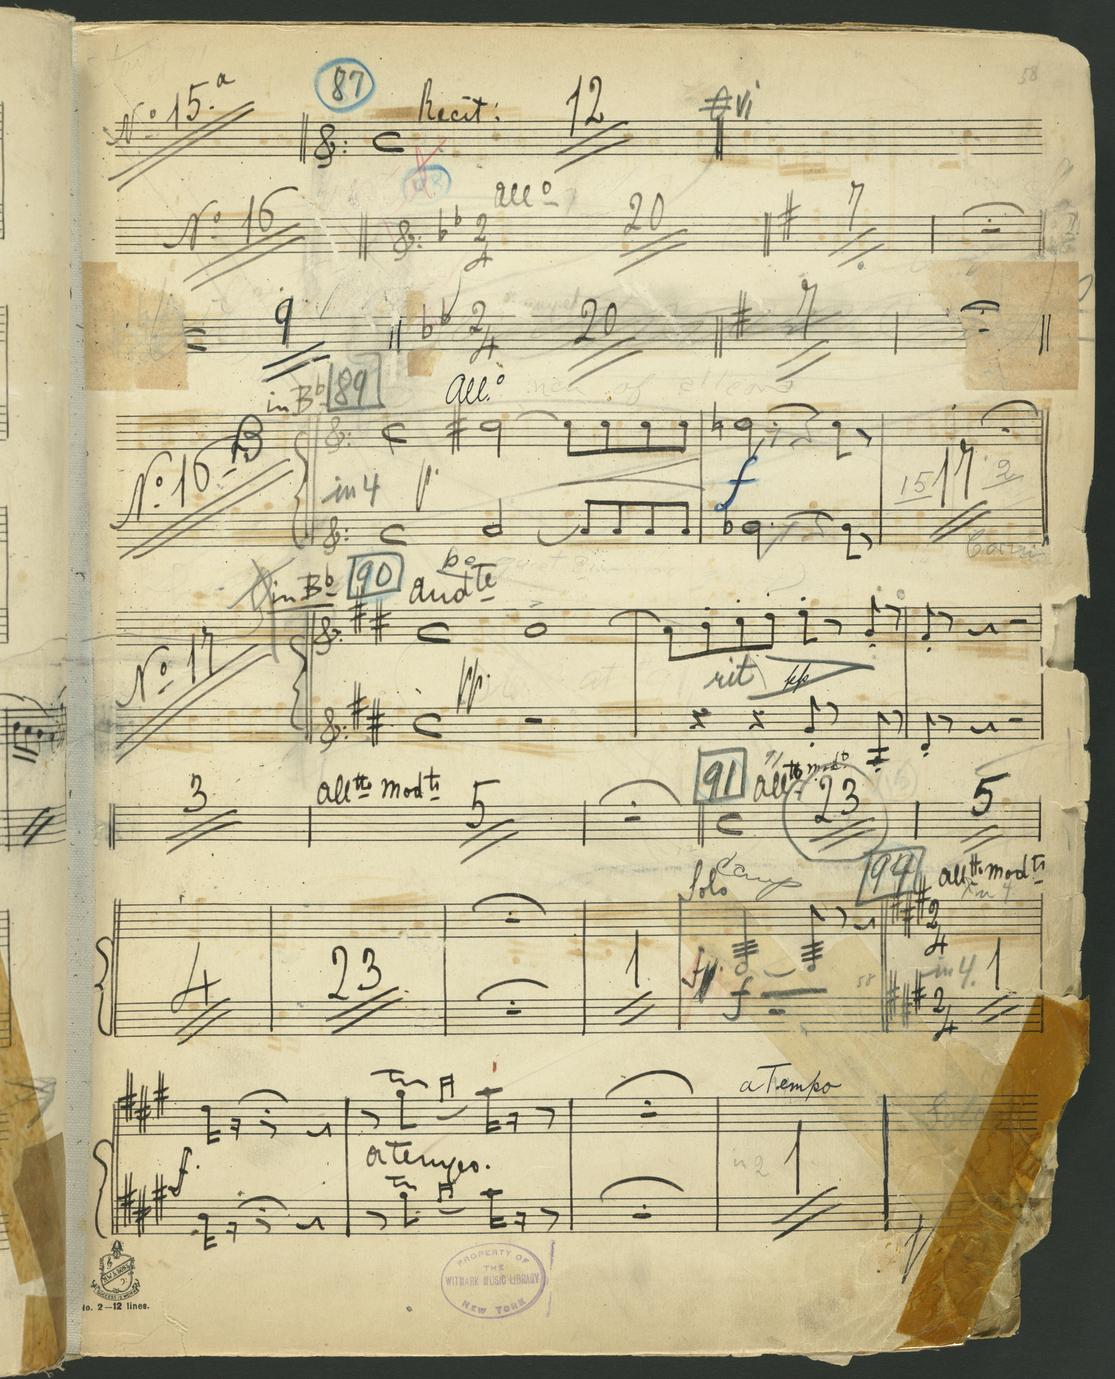 58
No 15.a 87 Recit: 12 #vi
No 16 88 allo 2/4 20 7
9 2/4 20 7
in Bb 89 All.o
No 16 B in 4 p. f 15 17 2
in Bb 90 andte
No 17 pp. rit pp
3 alltto modto 5 91 alltto modto 23 5
Solo 94 alltto modto
in 4
4 23 1 f 58 2/4 in 4. 1
tr a Tempo
f. a tempo. in 2 1
tr
PROPERTY OF
THE
WITMARK MUSIC LIBRARY
NEW YORK
No. 2—12 lines.